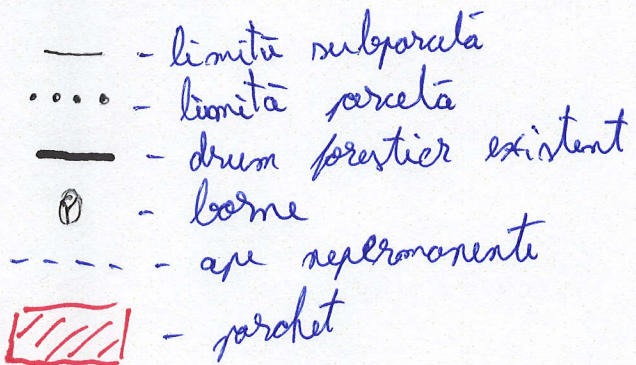 - limită subparcelă
- limită parcelă
- drum forestier existent
- borne
- ape nepermanente
- parchet